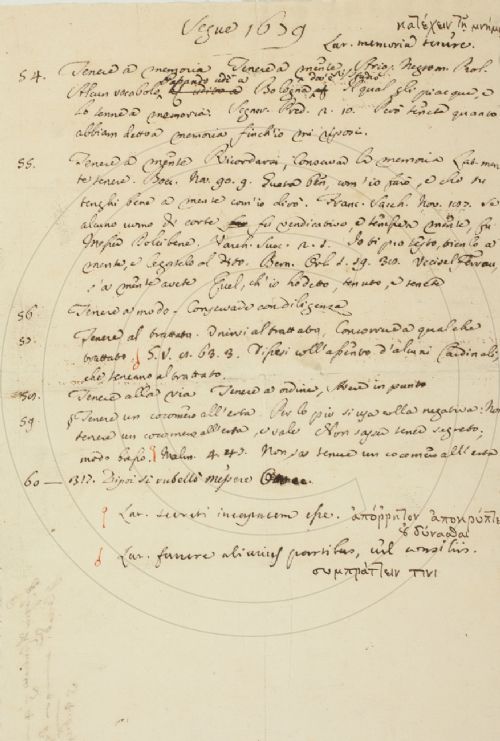 Segue 1639
κατέχειν τῇ μνήμῃ
Lat. memoria tenere.
54. Tenere a memoria Tenere a mente. Ario. Negrom. Prol.
Alcun vocabolo, passando udì a Bologna Il qual gli piacque, e
lo tenne a memoria. Segner. Pred. n. 10. Però tenete quanto
abbiam detto a memoria, finch'io mi riposi.
55. Tenere a mente Ricordarsi, Conservar la memoria Lat. men-
te tenere. Bocc. Nov. 90. 9. Guata ben, com'io farò, e che tu
tenghi bene a mente com'io dirò. Franc. Sacch. Nov. 107. Se
alcuno uomo di corte fu vendicativo, e tenesse a mente, fu
Messer Dolcibene. Varch. Suoc. 2. 1. Io ti so a
mente, e legatelo al dito. Bern. Orl. 1. 19. 30.
s'a mente avete Quel, ch'io ho detto, tenuto, e tenete
56. Tenere a modo. Conservare con diligenza
57. Tenere al trattato. Unirsi al trattato, Concorrere a qualche
trattato. G. V. 10. 63. 3. coll'assento d'alcuni Cardinali,
che teneano al trattato.
58. Tenere alla via Tenere a ordine, Avere in punto
59. § Tenere un cocomero all'erta. Per lo più si usa colla negativa: Non
tenere un cocomero all'erta, e vale Non saper tener segreto;
modo basso. Malm. 4. Non sa tenere un cocomero all'erta
60 — 1317. Dipoi si rubellò messere
Lat. secreti incapacem esse. ἀπόῤῥητον ἀποκρύπτειν
δύνασθαι
Lat. favere alicuius partibus, vel consiliis.
συμπράττειν τινι